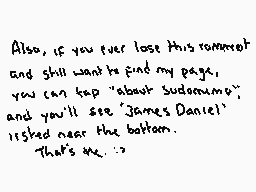 Also, if you ever lose this comment
and still want to find my page,
you can tap "about Sudomemo",
and you'll see "James Daniel"
listed near the bottom.
That's me. :)